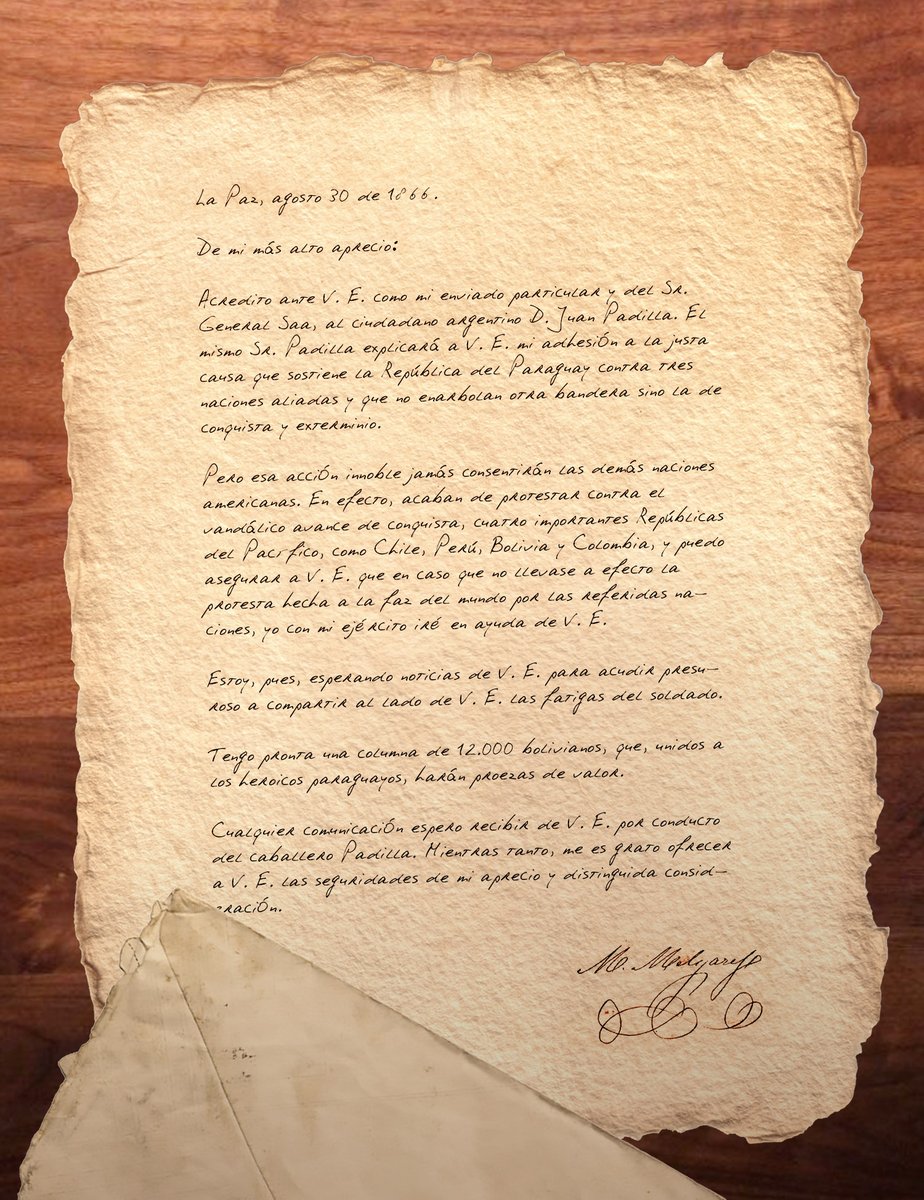 La Paz, agosto 30 de 1866.
De mi más alto aprecio:
Acredito ante V. E. como mi enviado particular y del Sr.
General Saa, al ciudadano argentino D. Juan Padilla. El
mismo Sr. Padilla explicará a V. E. mi adhesión a la justa
causa que sostiene la República del Paraguay contra tres
naciones aliadas y que no enarbolan otra bandera sino la de
conquista y exterminio.
Pero esa acción innoble jamás consentirán las demás naciones
americanas. En efecto, acaban de protestar contra el
vandálico avance de conquista, cuatro importantes Repúblicas
del Pacífico, como Chile, Perú, Bolivia y Colombia, y puedo
asegurar a V. E. que en caso que no llevase a efecto la
protesta hecha a la faz del mundo por las referidas na-
ciones, yo con mi ejército iré en ayuda de V. E.
Estoy, pues, esperando noticias de V. E. para acudir presu-
roso a compartir al lado de V. E. las fatigas del soldado.
Tengo pronta una columna de 12.000 bolivianos, que, unidos a
los heroicos paraguayos, harán proezas de valor.
Cualquier comunicación espero recibir de V. E. por conducto
del caballero Padilla. Mientras tanto, me es grato ofrecer
a V. E. las seguridades de mi aprecio y distinguida consid-
eración.
M. Melgarejo